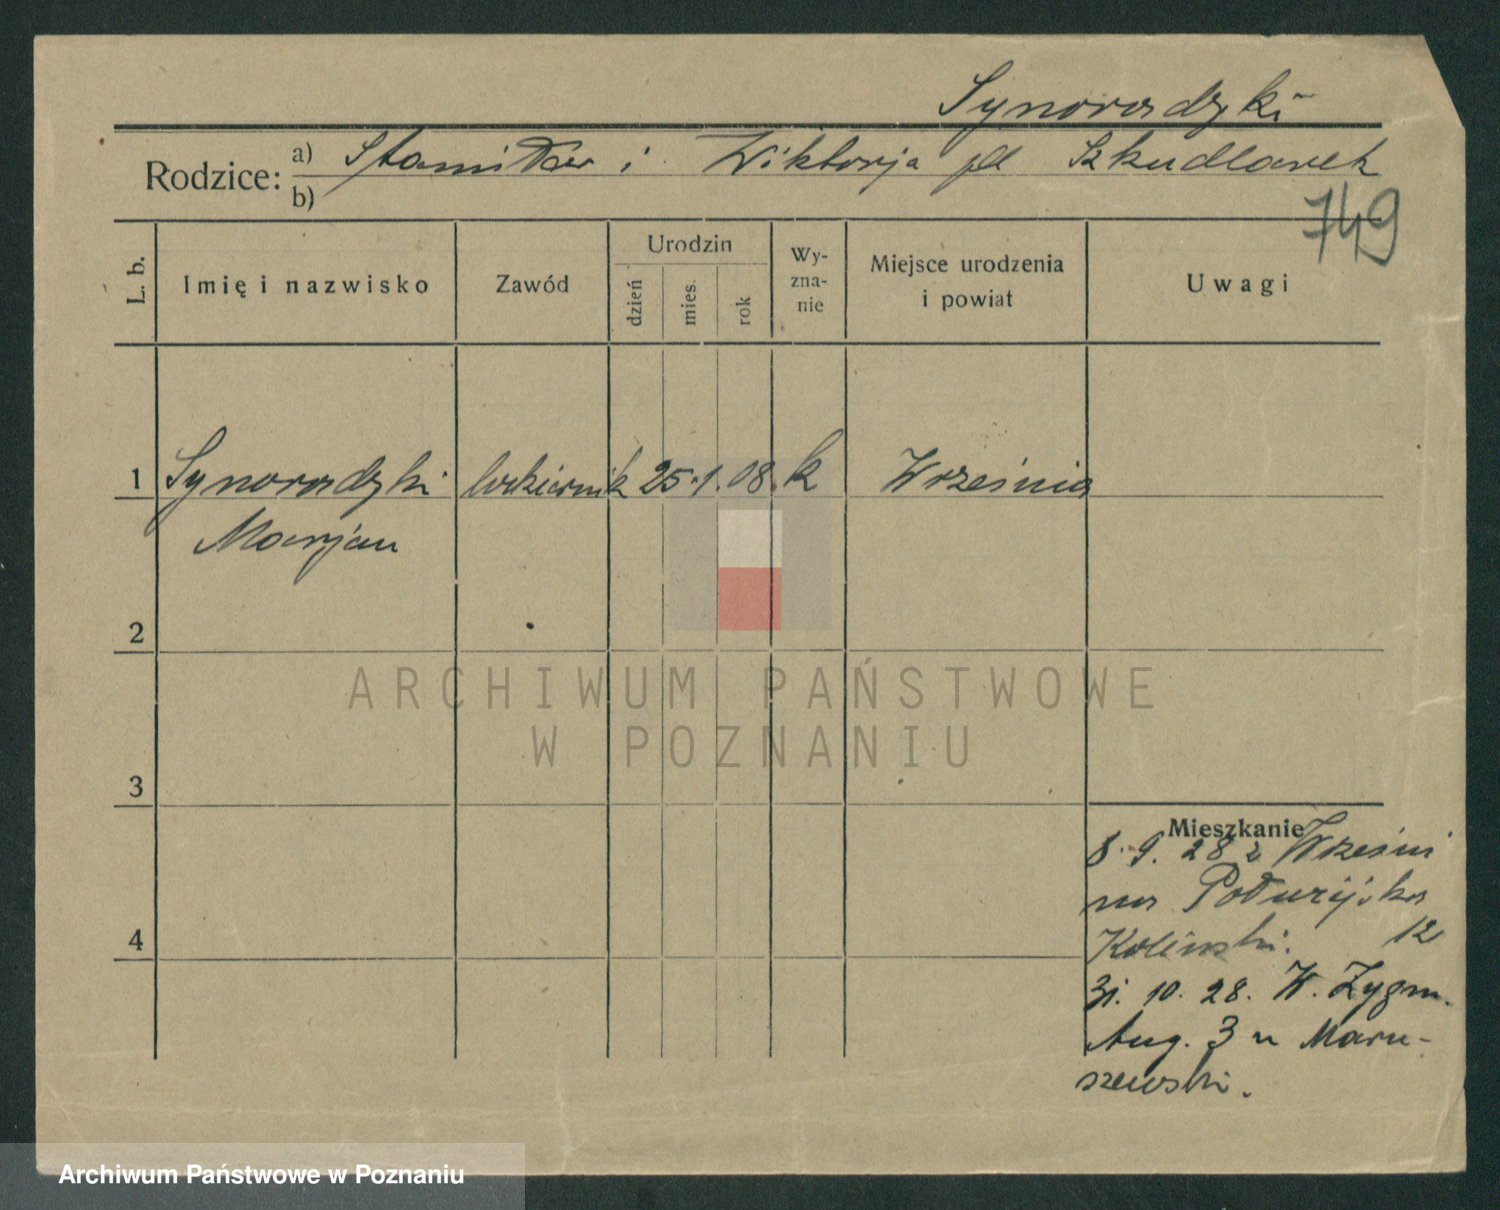 Synoradzki
Rodzice: a) Stanisław i Wiktorja pd Szkudlarek
b)
749
L. b.
Imię i nazwisko
Zawód
Urodzin
dzień
mies.
rok
Wy-
zna-
nie
Miejsce urodzenia
i powiat
Uwagi
1 Synoradzki cukiernik 25.1.08. k Września
Marjan
2
3
4
Mieszkanie
8.9.28 z Wrześni
na
12
31.10.28. W. Zygm.
Aug. 3 u Maru-
szewski.
ARCHIWUM PAŃSTWOWE
W POZNANIU
Archiwum Państwowe w Poznaniu